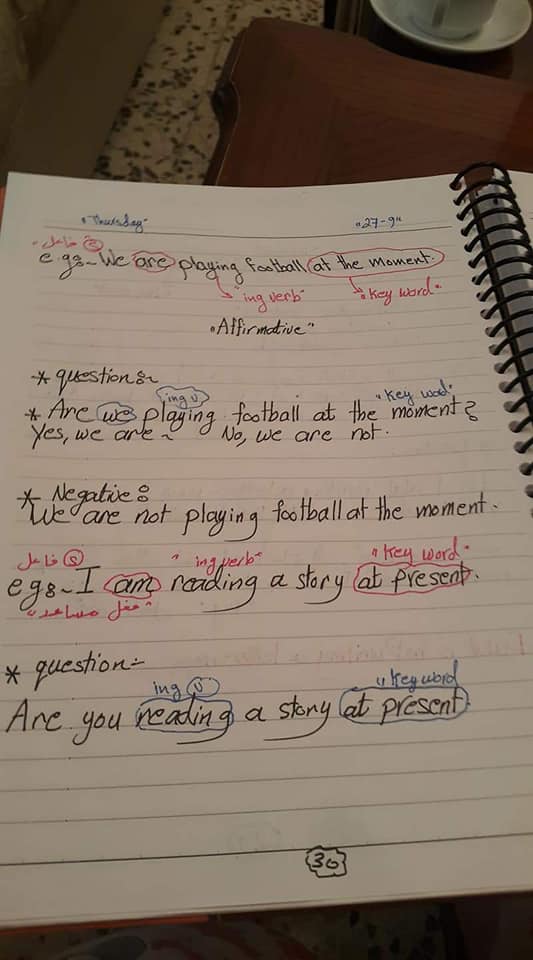 "Thursday" "27-9"
"فاعل" (s)
e.g:~ We are playing football at the moment.
"ing verb" "Key word"
"Affirmative"
* question:~
ing v "Key word"
* Are we playing football at the moment?
Yes, we are~ No, we are not.
* Negative:
We are not playing football at the moment.
فاعل (s) "ing verb" "Key word"
eg:~ I am reading a story at present.
"فعل مساعد"
* question:-
ing v "Key word
Are you reading a story at present
30